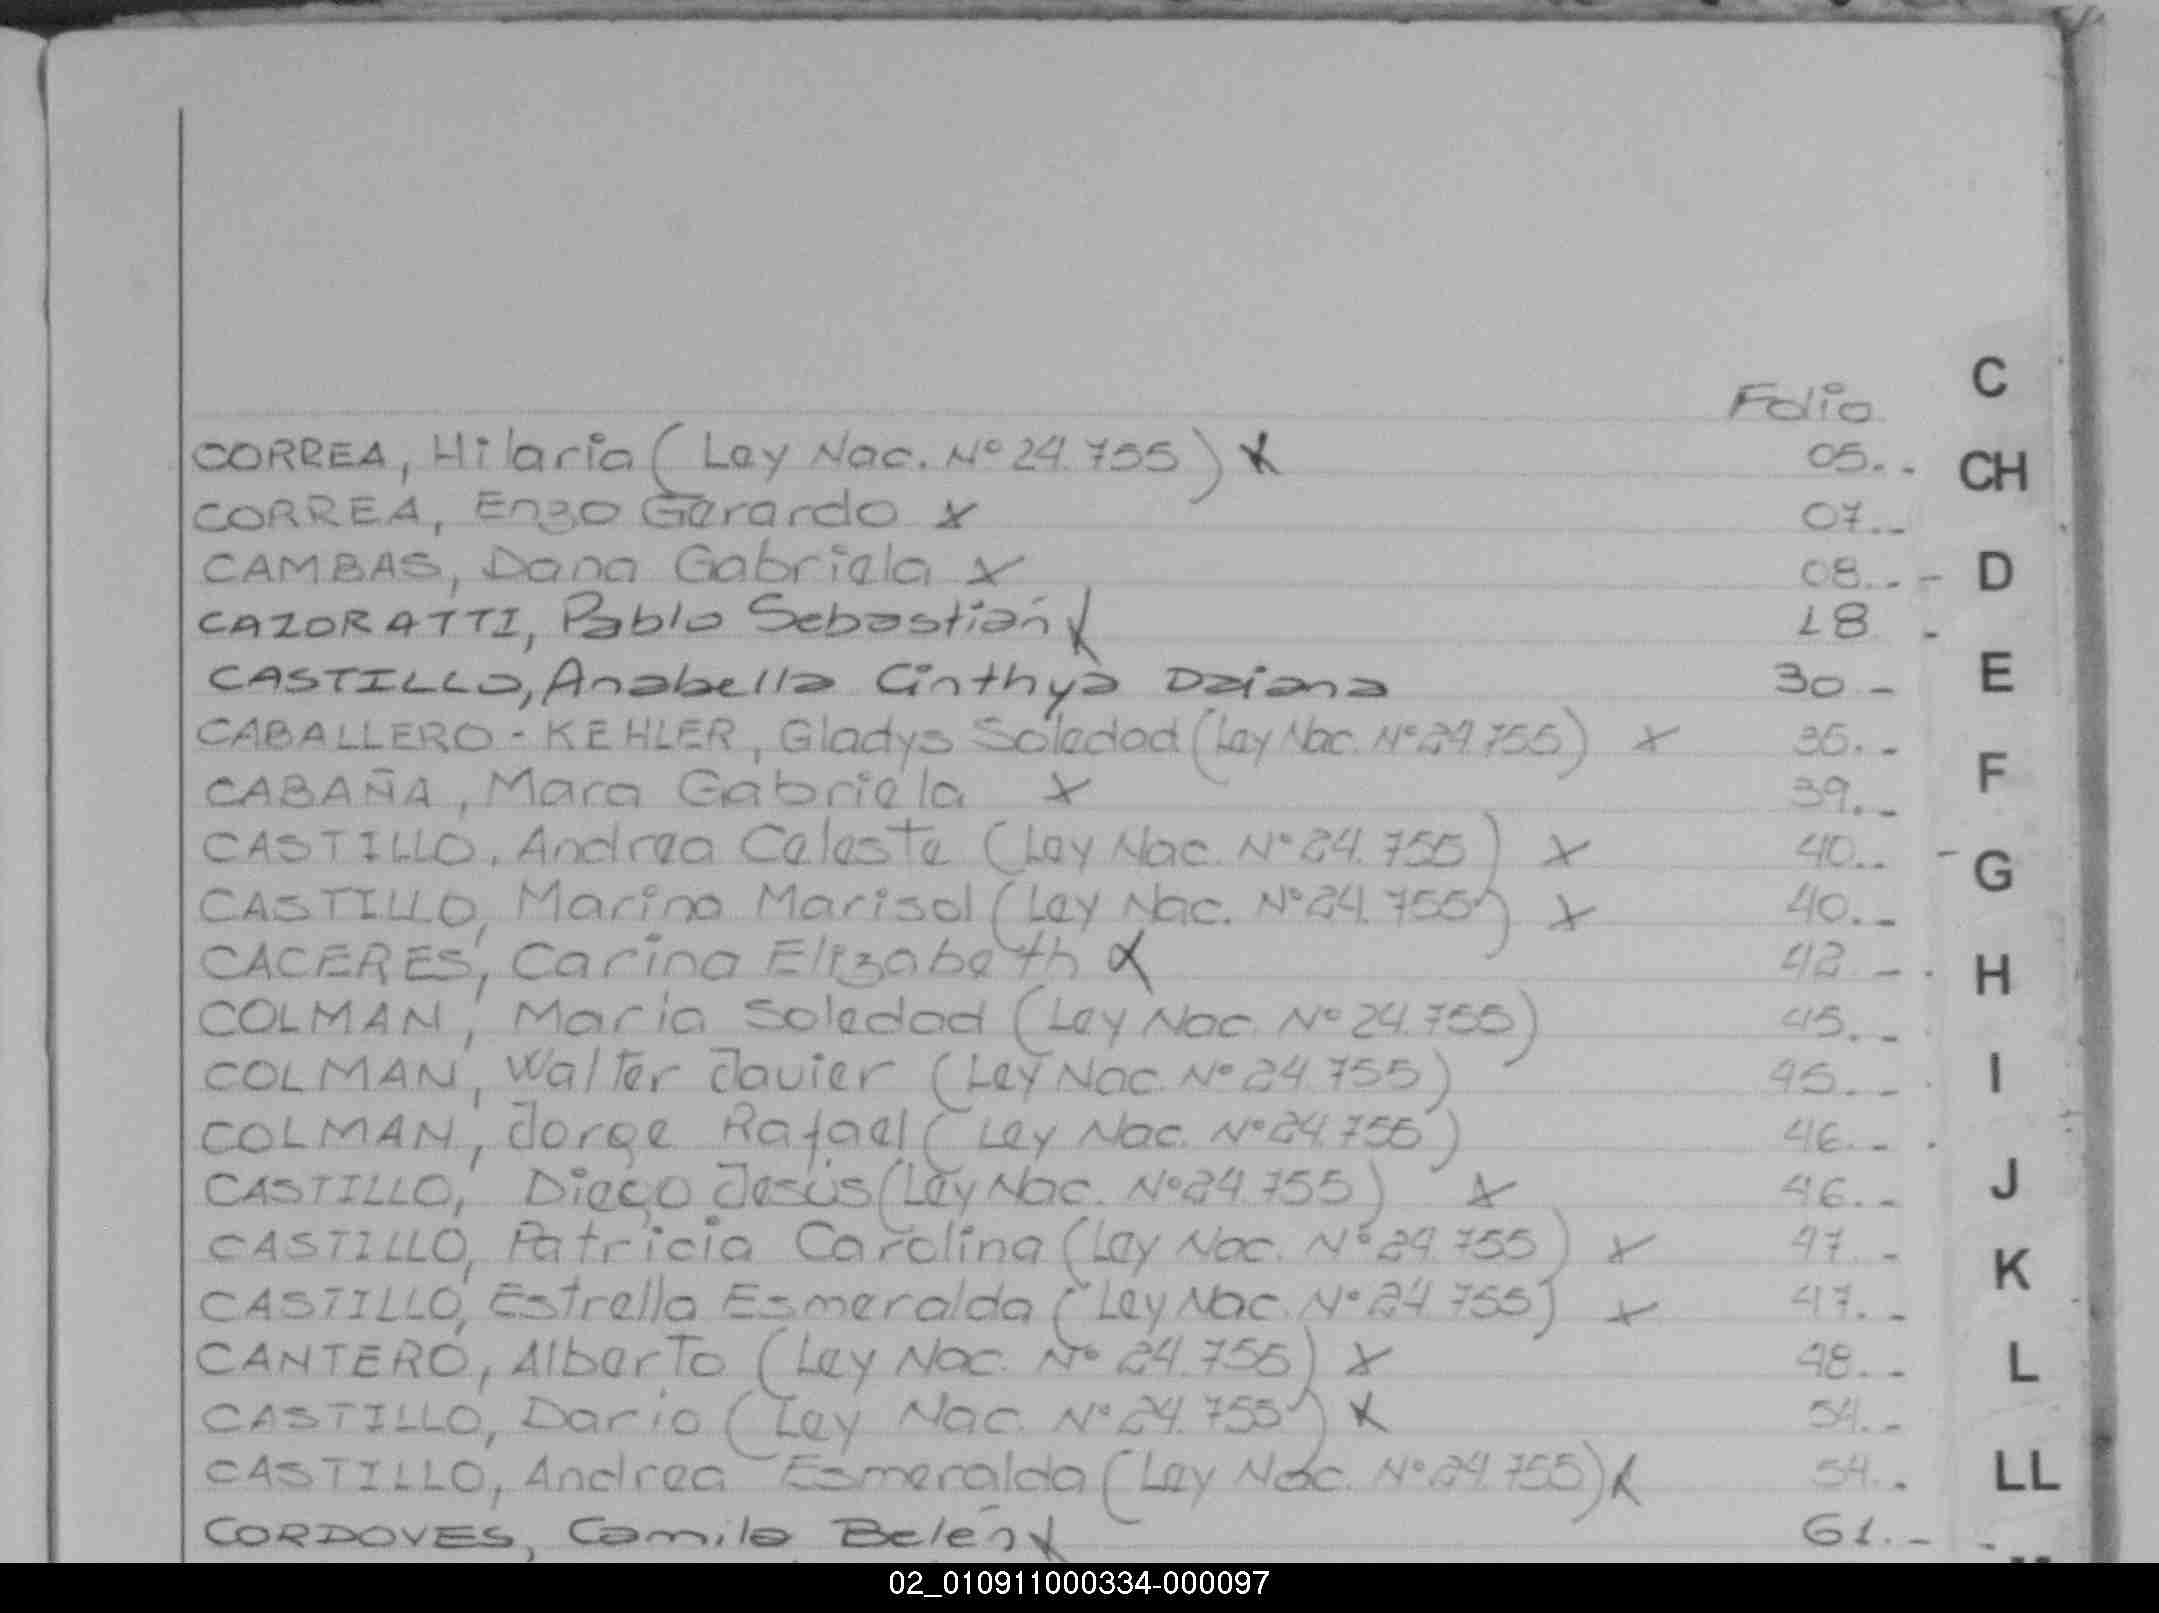 Folio
CORREA, Hilaria (Ley Nac. Nº 24.755) x 05.-
CORREA, Enzo Gerardo x 07.-
CAMBAS, Dana Gabriela x 08.-
CAZORATTI, Pablo Sebastián x 18 -
CASTILLO, Anabella Cinthya Daiana 30 -
CABALLERO - KEHLER, Gladys Soledad (Ley Nac. Nº 24.755) x 35.-
CABAÑA, Mara Gabriela x 39.-
CASTILLO, Andrea Celeste (Ley Nac. Nº 24.755) x 40.-
CASTILLO, Marina Marisol (Ley Nac. Nº 24.755) x 40.-
CACERES, Carina Elizabeth x 42 -
COLMAN, Maria Soledad (Ley Nac. Nº 24.755) 45.-
COLMAN, Walter Javier (Ley Nac. Nº 24.755) 45.-
COLMAN, Jorge Rafael (Ley Nac. Nº 24.755) 46.-
CASTILLO, Diego Jesús (Ley Nac. Nº 24.755) x 46.-
CASTILLO, Patricia Carolina (Ley Nac. Nº 24.755) x 47.-
CASTILLO, Estrella Esmeralda (Ley Nac. Nº 24.755) x 47.-
CANTERO, Alberto (Ley Nac. Nº 24.755) x 48.-
CASTILLO, Dario (Ley Nac. Nº 24.755) x 54.-
CASTILLO, Andrea Esmeralda (Ley Nac. Nº 24.755) x 54.-
CORDOVES, Camila Belén x 61.-
C
CH
D
E
F
G
H
I
J
K
L
LL
02_010911000334-000097